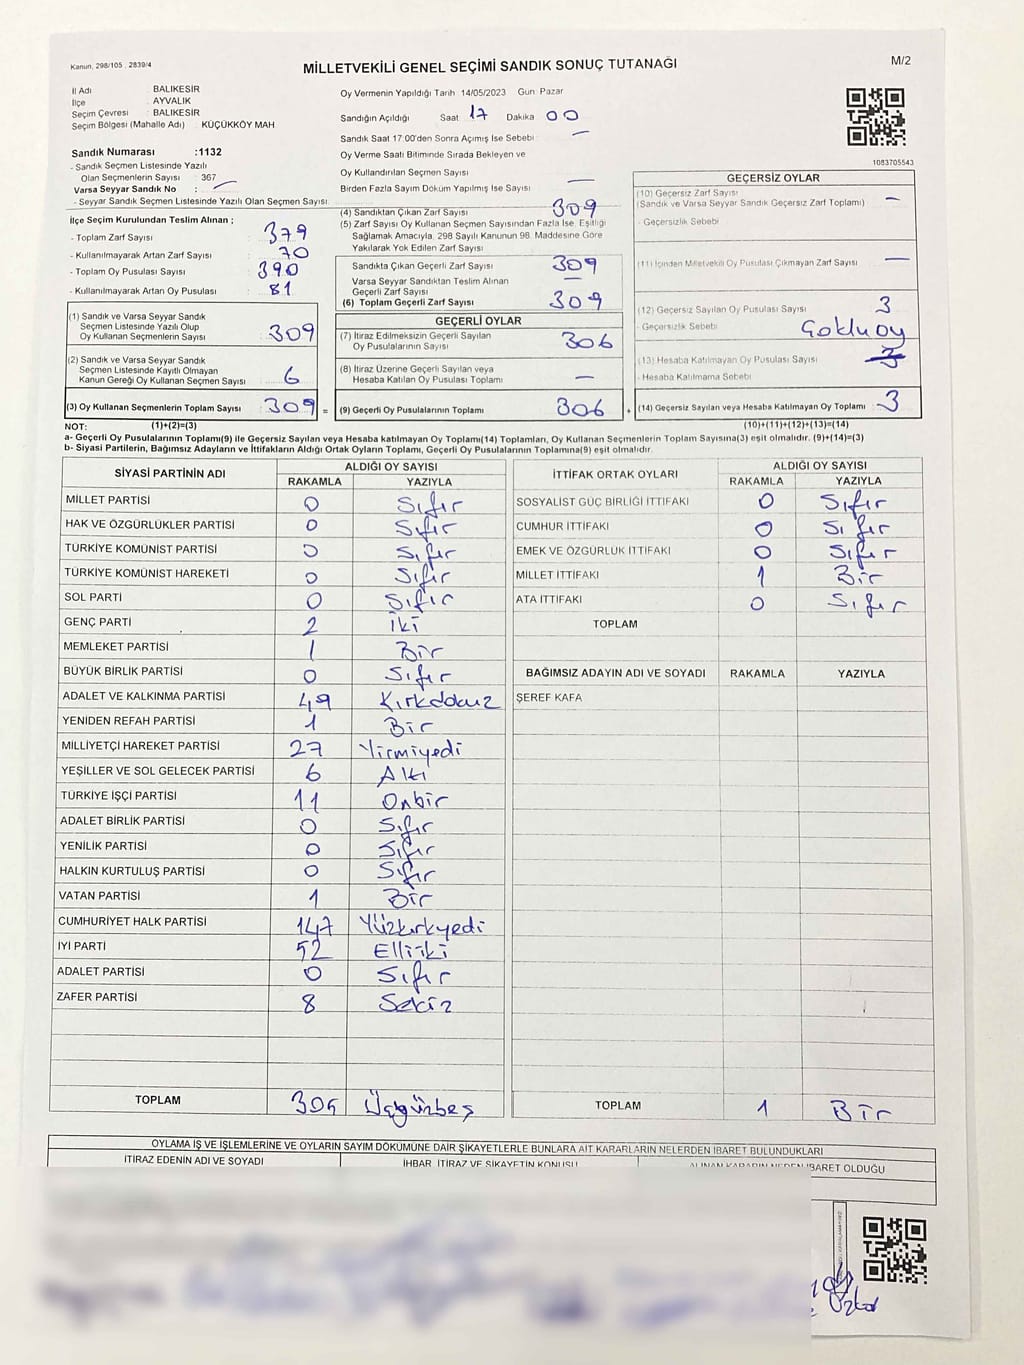 Kanun, 298/105 . 2839/4
MİLLETVEKİLİ GENEL SEÇİMİ SANDIK SONUÇ TUTANAĞI
M/2
İl Adı : BALIKESİR
İlçe : AYVALIK
Seçim Çevresi : BALIKESİR
Seçim Bölgesi (Mahalle Adı) : KÜÇÜKKÖY MAH
Oy Vermenin Yapıldığı Tarih :14/05/2023 Gün :Pazar
Sandığın Açıldığı Saat 17 Dakika 00
Sandık Saat 17:00'den Sonra Açılmış İse Sebebi : —
Oy Verme Saati Bitiminde Sırada Bekleyen ve
Oy Kullandırılan Seçmen Sayısı : —
Birden Fazla Sayım Döküm Yapılmış İse Sayısı :
1083705543
Sandık Numarası :1132
- Sandık Seçmen Listesinde Yazılı
Olan Seçmenlerin Sayısı : 367
Varsa Seyyar Sandık No : —
- Seyyar Sandık Seçmen Listesinde Yazılı Olan Seçmen Sayısı:
İlçe Seçim Kurulundan Teslim Alınan ;
- Toplam Zarf Sayısı : 379
- Kullanılmayarak Artan Zarf Sayısı : 70
- Toplam Oy Pusulası Sayısı : 390
- Kullanılmayarak Artan Oy Pusulası : 81
(1) Sandık ve Varsa Seyyar Sandık
Seçmen Listesinde Yazılı Olup
Oy Kullanan Seçmenlerin Sayısı : 309
(2) Sandık ve Varsa Seyyar Sandık
Seçmen Listesinde Kayıtlı Olmayan
Kanun Gereği Oy Kullanan Seçmen Sayısı : 6
(3) Oy Kullanan Seçmenlerin Toplam Sayısı : 309 =
(4) Sandıktan Çıkan Zarf Sayısı 309
(5) Zarf Sayısı Oy Kullanan Seçmen Sayısından Fazla İse, Eşitliği
Sağlamak Amacıyla, 298 Sayılı Kanunun 98. Maddesine Göre
Yakılarak Yok Edilen Zarf Sayısı
Sandıkta Çıkan Geçerli Zarf Sayısı 309
Varsa Seyyar Sandıktan Teslim Alınan —
Geçerli Zarf Sayısı
(6) Toplam Geçerli Zarf Sayısı 309
GEÇERLİ OYLAR
(7) İtiraz Edilmeksizin Geçerli Sayılan
Oy Pusulalarının Sayısı 306
(8) İtiraz Üzerine Geçerli Sayılan veya
Hesaba Katılan Oy Pusulası Toplamı —
(9) Geçerli Oy Pusulalarının Toplamı 306 +
GEÇERSİZ OYLAR
(10) Geçersiz Zarf Sayısı
(Sandık ve Varsa Seyyar Sandık Geçersiz Zarf Toplamı) —
- Geçersizlik Sebebi
(11) İçinden Milletvekili Oy Pusulası Çıkmayan Zarf Sayısı —
(12) Geçersiz Sayılan Oy Pusulası Sayısı 3
- Geçersizlik Sebebi Çoklu oy
(13) Hesaba Katılmayan Oy Pusulası Sayısı 3
- Hesaba Katılmama Sebebi
(14) Geçersiz Sayılan veya Hesaba Katılmayan Oy Toplamı 3
NOT: (1)+(2)=(3) (10)+(11)+(12)+(13)=(14)
a- Geçerli Oy Pusulalarının Toplamı(9) ile Geçersiz Sayılan veya Hesaba katılmayan Oy Toplamı(14) Toplamları, Oy Kullanan Seçmenlerin Toplam Sayısına(3) eşit olmalıdır. (9)+(14)=(3)
b- Siyasi Partilerin, Bağımsız Adayların ve İttifakların Aldığı Ortak Oyların Toplamı, Geçerli Oy Pusulalarının Toplamına(9) eşit olmalıdır.
SİYASİ PARTİNİN ADI ALDIĞI OY SAYISI
RAKAMLA YAZIYLA
MİLLET PARTİSİ 0 Sıfır
HAK VE ÖZGÜRLÜKLER PARTİSİ 0 Sıfır
TÜRKİYE KOMÜNİST PARTİSİ 0 Sıfır
TÜRKİYE KOMÜNİST HAREKETİ 0 Sıfır
SOL PARTİ 0 Sıfır
GENÇ PARTİ 2 İki
MEMLEKET PARTİSİ 1 Bir
BÜYÜK BİRLİK PARTİSİ 0 Sıfır
ADALET VE KALKINMA PARTİSİ 49 Kırkdokuz
YENİDEN REFAH PARTİSİ 1 Bir
MİLLİYETÇİ HAREKET PARTİSİ 27 Yirmiyedi
YEŞİLLER VE SOL GELECEK PARTİSİ 6 Altı
TÜRKİYE İŞÇİ PARTİSİ 11 Onbir
ADALET BİRLİK PARTİSİ 0 Sıfır
YENİLİK PARTİSİ 0 Sıfır
HALKIN KURTULUŞ PARTİSİ 0 Sıfır
VATAN PARTİSİ 1 Bir
CUMHURİYET HALK PARTİSİ 147 Yüzkırkyedi
İYİ PARTİ 52 Elliiki
ADALET PARTİSİ 0 Sıfır
ZAFER PARTİSİ 8 Sekiz
TOPLAM 305 Üçyüzbeş
İTTİFAK ORTAK OYLARI ALDIĞI OY SAYISI
RAKAMLA YAZIYLA
SOSYALİST GÜÇ BİRLİĞİ İTTİFAKI 0 Sıfır
CUMHUR İTTİFAKI 0 Sıfır
EMEK VE ÖZGÜRLÜK İTTİFAKI 0 Sıfır
MİLLET İTTİFAKI 1 Bir
ATA İTTİFAKI 0 Sıfır
TOPLAM
BAĞIMSIZ ADAYIN ADI VE SOYADI RAKAMLA YAZIYLA
ŞEREF KAFA
TOPLAM 1 Bir
OYLAMA İŞ VE İŞLEMLERİNE VE OYLARIN SAYIM DÖKÜMÜNE DAİR ŞİKAYETLERLE BUNLARA AİT KARARLARIN NELERDEN İBARET BULUNDUKLARI
İTİRAZ EDENİN ADI VE SOYADI İHBAR, İTİRAZ VE ŞİKAYETİN KONUSU ALINAN KARARIN NEDEN İBARET OLDUĞU